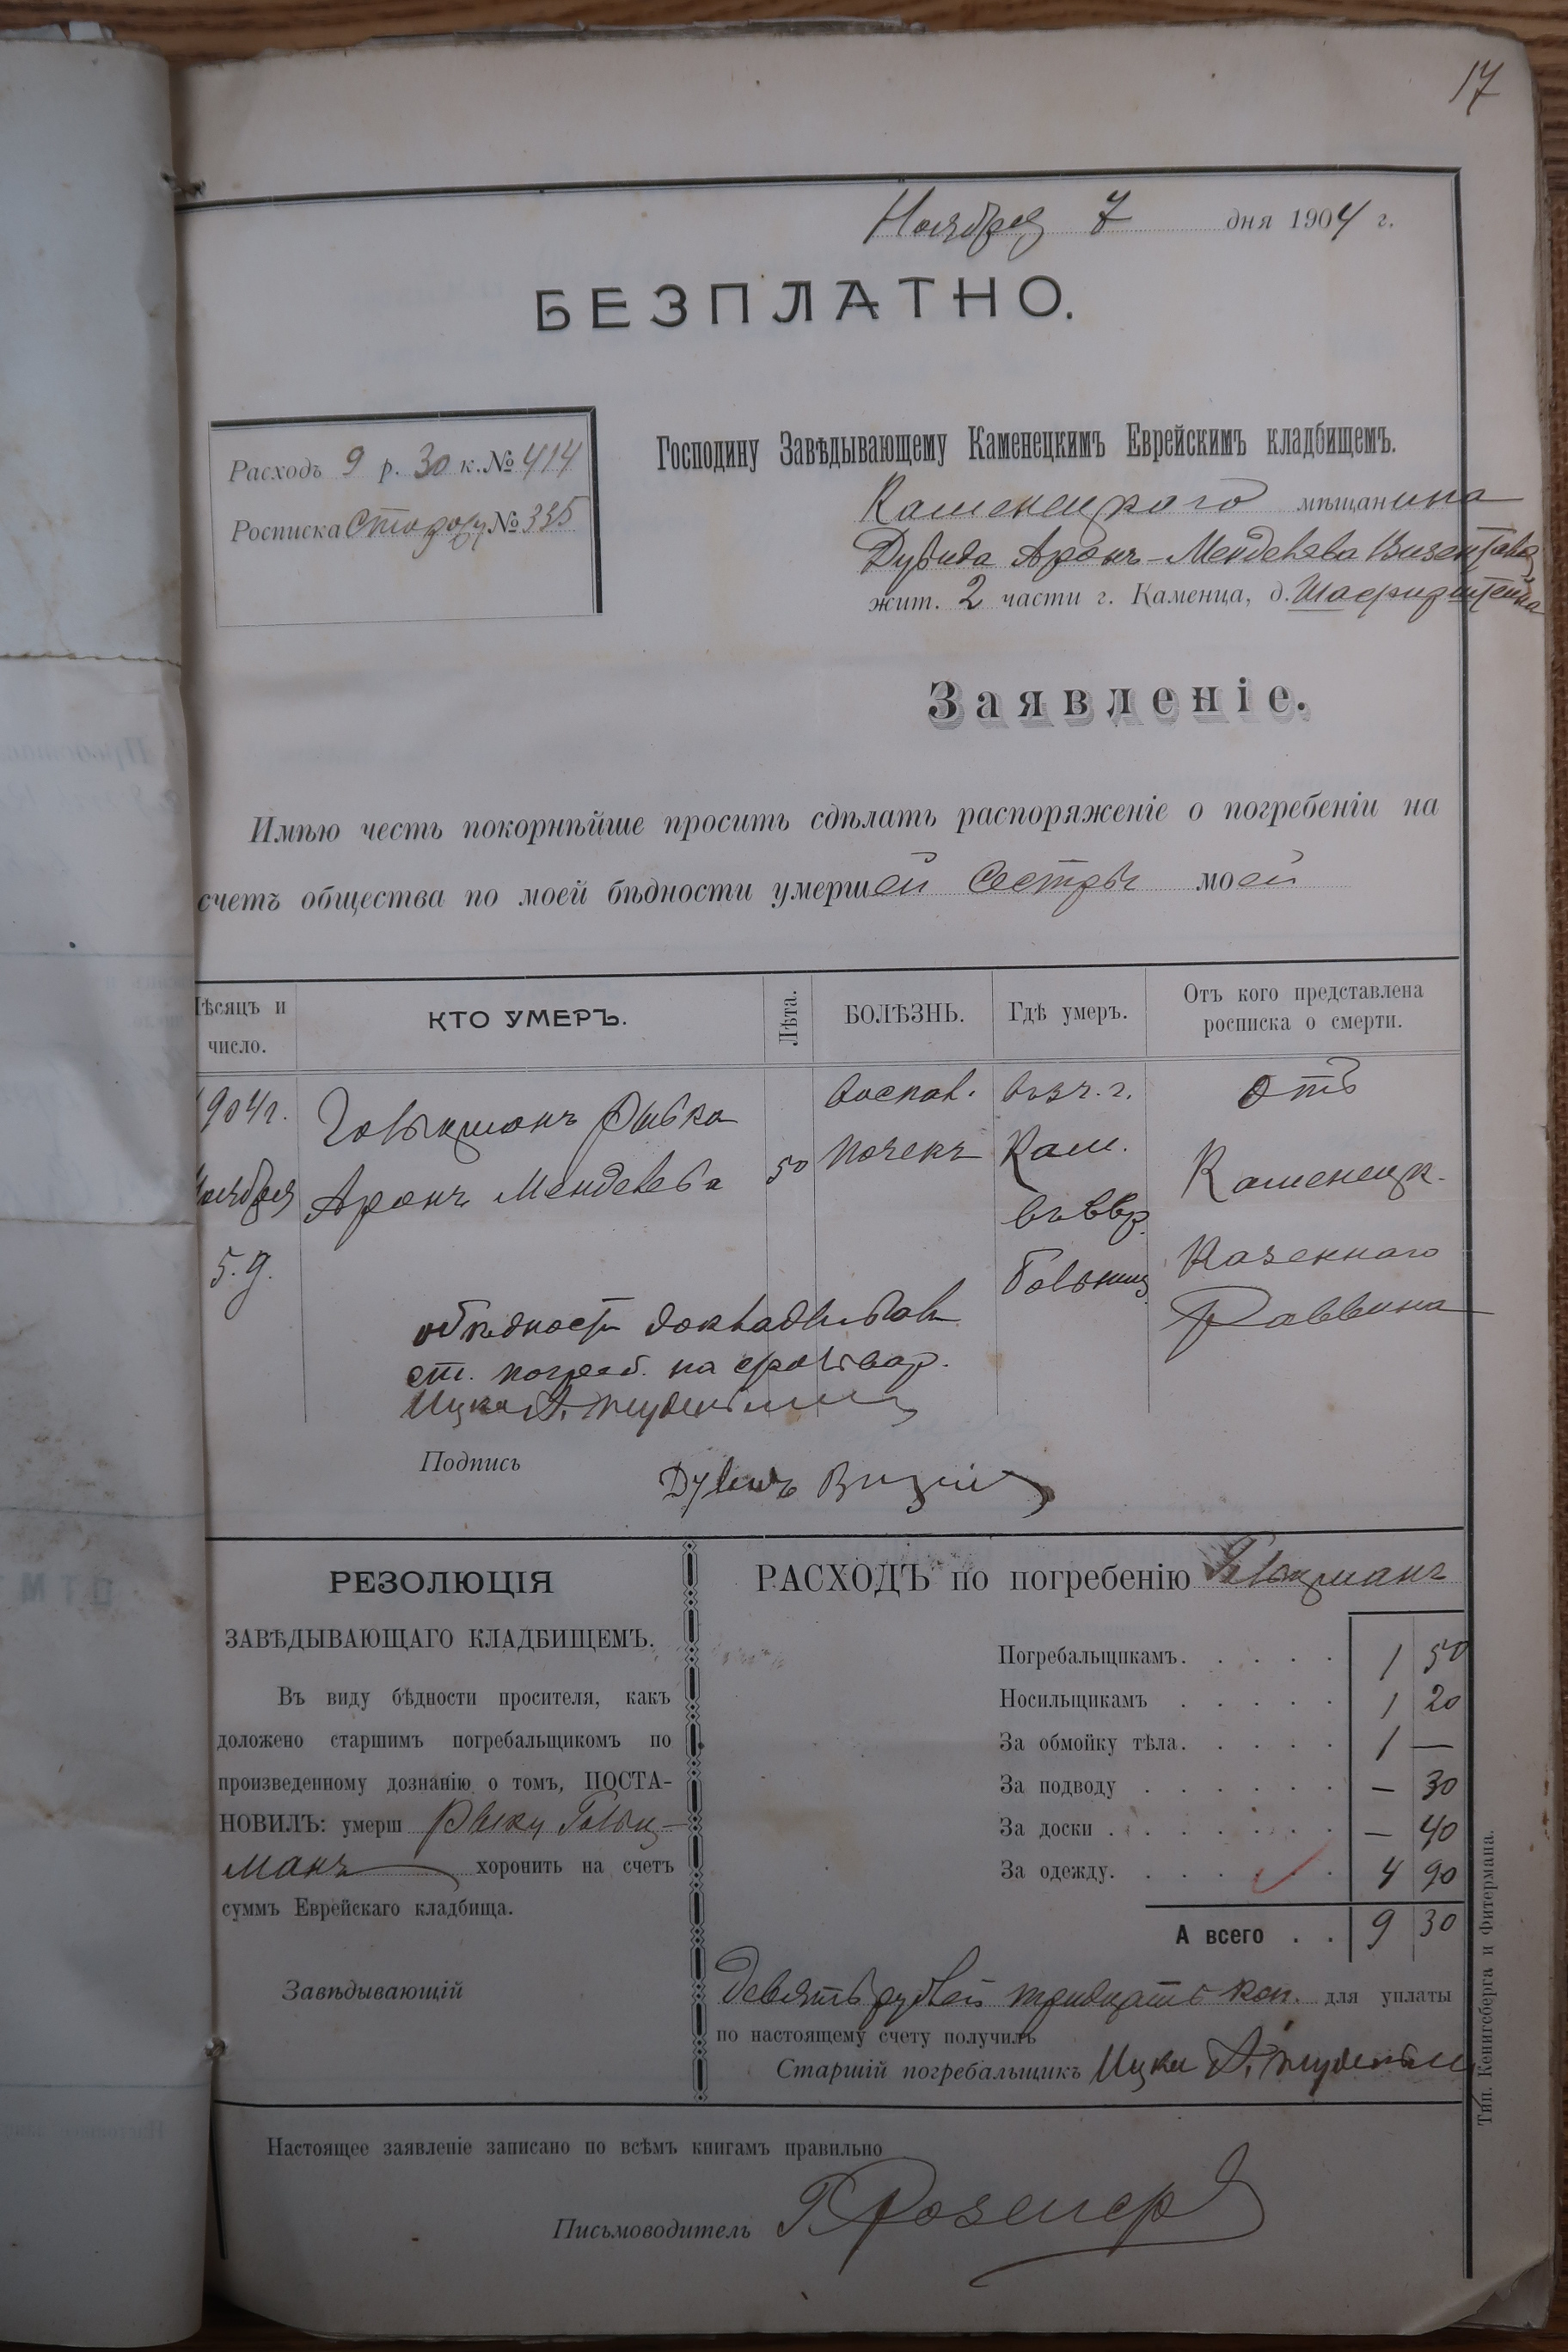 17
Ноября 7 дня 1904 г.
БЕЗПЛАТНО.
Расходъ 9 р. 30 к. № 414
Росписка Сторожу № 335
Господину Завѣдывающему Каменецкимъ Еврейскимъ кладбищемъ.
Каменецкаго мѣщанина
Дувида Аронъ-Менделева
жит. 2 части г. Каменца, д.
Заявленіе.
Имѣю честь покорнѣйше просить сдѣлать распоряженіе о погребеніи на
счетъ общества по моей бѣдности умершей Сестры моей
Мѣсяцъ и число.
КТО УМЕРЪ.
Лѣта.
БОЛѢЗНЬ.
Гдѣ умеръ.
Отъ кого представлена росписка о смерти.
1904 г.
Ноября
5. д.
Гольцманъ Рывка
Аронъ Менделева
50
воспал.
почекъ
въ 3 ч. г.
Кам.
въ Евр.
больниц.
Отъ
Каменецк.
Казеннаго
Раввина
о бѣдности докладывалъ
ст. погреб.
Ицко
Подпись
Дувидъ
РЕЗОЛЮЦІЯ
ЗАВѢДЫВАЮЩАГО КЛАДБИЩЕМЪ.
Въ виду бѣдности просителя, какъ
доложено старшимъ погребальщикомъ по
произведенному дознанію о томъ, ПОСТА-
НОВИЛЪ: умерш Рывку Гольц-
манъ хоронить на счетъ
суммъ Еврейскаго кладбища.
Завѣдывающій
РАСХОДЪ по погребенію Гольцманъ
Погребальщикамъ. . . . . 1 50
Носильщикамъ . . . . . 1 20
За обмойку тѣла. . . . . 1 —
За подводу . . . . . . — 30
За доски . . . . . . . — 40
За одежду. . . . . . 4 90
А всего . . 9 30
Девять рублей тридцать коп. для уплаты
по настоящему счету получилъ
Старшій погребальщикъ Ицко
Настоящее заявленіе записано по всѣмъ книгамъ правильно
Письмоводитель
Тип. Кенигсберга и Фитермана.